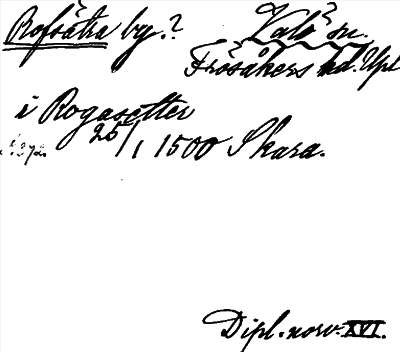 Rofsätra by.? Valö sn.
Frösåkers hd. Upl
i Rogasetter
25/1 1500 Skara.
Dipl. norv. XVI.